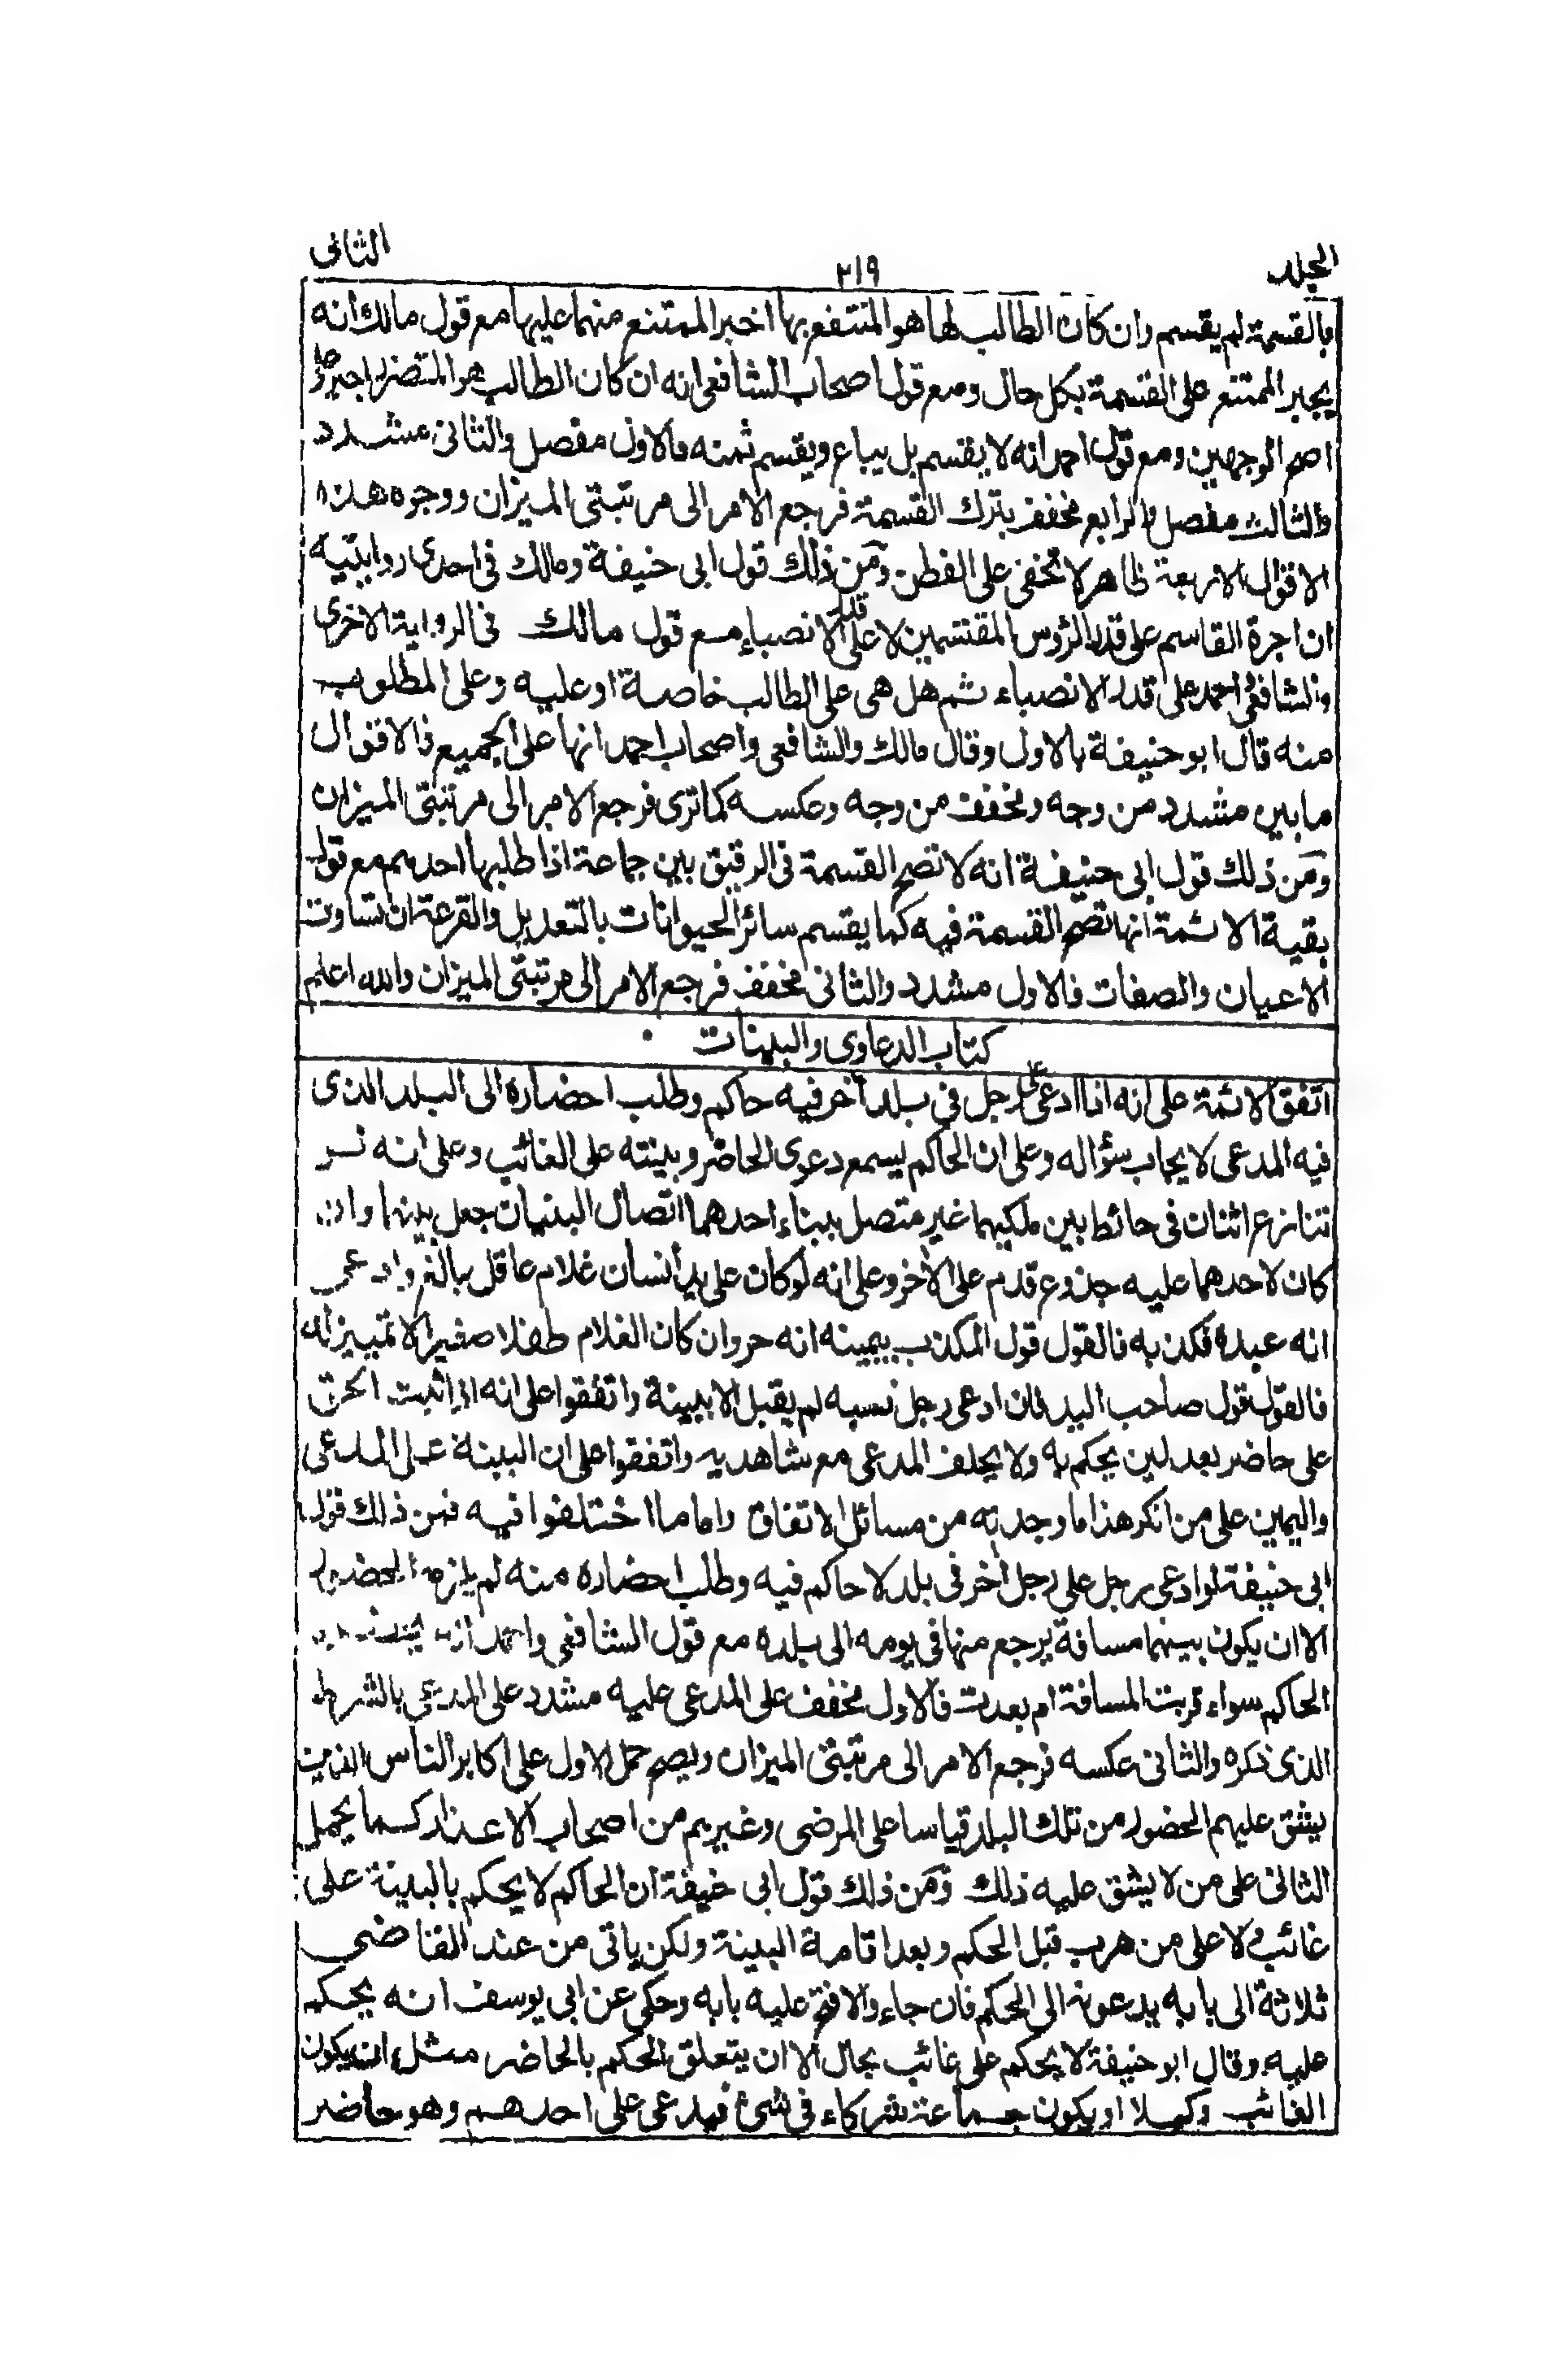 الجلد ٢١٩ الثانى
بالقسمة لم يقسم وان كان الطالب لها هو المنتفع بها اخبر الممتنع منهما عليها مع قول مالك انه
يجبر الممتنع على القسمة بكل حال ومع قول اصحاب الشافعى انه ان كان الطالب هو المتضرر اجبر على
اصح الوجهين ومع قول احمد انه لا يقسم بل يباع ويقسم ثمنه فالاول مفصل والثانى مشدد
والثالث مفصل والرابع مخفف بترك القسمة فرجع الامر الى مرتبتى الميزان ووجوه هذا
الاقوال الاربعة ظاهر لا تخفى على الفطن ومن ذلك قول ابى حنيفة ومالك فى احدى روايتيه
ان اجرة القاسم على قدر الرؤس المقتسمين لا على قدر الانصباء مع قول مالك فى الرواية الاخرى
والشافعى واحمد على قدر الانصباء ثم هل هى على الطالب خاصة او عليه وعلى المطلوب
منه قال ابو حنيفة بالاول وقال مالك والشافعى واصحاب احمد انها على الجميع فالاقوال
ما بين مشدد من وجه ومخفف من وجه وعكسه كما ترى فرجع الامر الى مرتبتى الميزان
ومن ذلك قول ابى حنيفة انه لا تصح القسمة فى الرقيق بين جماعة اذا طلبها احدهم مع قول
بقية الائمة انها تصح القسمة فيه كما يقسم سائر الحيوانات بالتعديل والقرعة ان تساوت
الاعيان والصفات فالاول مشدد والثانى مخفف فرجع الامر الى مرتبتى الميزان والله اعلم
كتاب الدعاوى والبينات
اتفق الائمة على انه اذا ادعى على رجل فى بلد آخر فيه حاكم وطلب احضاره الى البلد الذى
فيه المدعى لا يجاب سؤاله وعلى ان الحاكم يسمع دعوى الحاضر وبينته على الغائب وعلى انه
تنازع اثنان فى حائط بين ملكيهما غير متصل ببناء احدهما اتصال البنيان جعل بينهما وان
كان لاحدهما عليه جذوع قدم على الآخر وعلى انه لو كان على يد انسان غلام عاقل بالغ وادعى
انه عبده فكذبه فالقول قول المكذب بيمينه انه حر وان كان الغلام طفلا صغيرا لا تمييز له
فالقول قول صاحب اليد فان ادعى رجل نسبه لم يقبل الا ببينة واتفقوا على انه اذا ثبت الحق
على حاضر بعدلين يحكم به ولا يحلف المدعى مع شاهديه واتفقوا على ان البينة على المدعى
واليمين على من انكر هذا ما وجدته من مسائل الاتفاق واما ما اختلفوا فيه فمن ذلك قول
ابى حنيفة لو ادعى رجل على رجل آخر فى بلد لا حاكم فيه وطلب احضاره منه لم يلزمه الحضور
الا ان يكون بينهما مسافة يرجع منها فى يومه الى بلده مع قول الشافعى واحمد انه
الحاكم سواء قربت المسافة ام بعدت فالاول مخفف على المدعى عليه مشدد على المدعى بالشرط
الذى ذكره والثانى عكسه فرجع الامر الى مرتبتى الميزان ويصح حمل الاول على اكابر الناس الذين
يشق عليهم الحضور من تلك البلد قياسا على المرضى وغيرهم من اصحاب الاعذار كما يحمل
الثانى على من لا يشق عليه ذلك ومن ذلك قول ابى حنيفة ان الحاكم لا يحكم بالبينة على
غائب ولا على من هرب قبل الحكم وبعد اقامة البينة ولكن ياتى من عند القاضى
ثلاثة الى بابه يدعونه الى الحكم فان جاء والا فتح عليه بابه وحكى عن ابى يوسف انه يحكم
عليه وقال ابو حنيفة لا يحكم على غائب بحال الا ان يتعلق الحكم بالحاضر مثل ان يكون
الغائب وكيلا او يكون جماعة شركاء فى شئ فيدعى على احدهم وهو حاضر